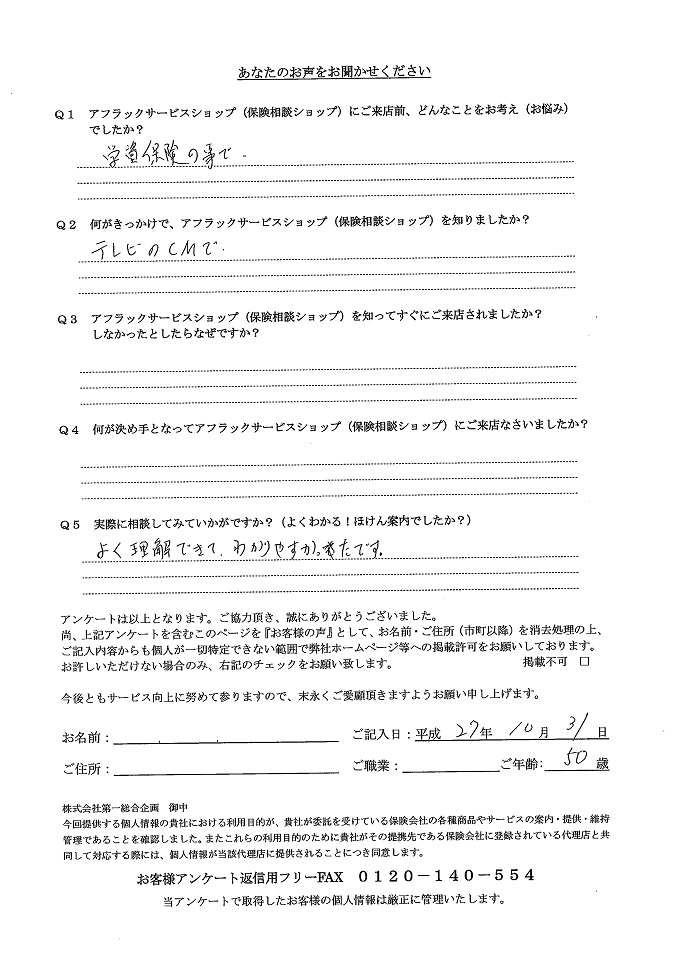 あなたのお声をお聞かせください
Q1 アフラックサービスショップ(保険相談ショップ)にご来店前、どんなことをお考え(お悩み)
でしたか?
学資保険の事で.
Q2 何がきっかけで、アフラックサービスショップ(保険相談ショップ)を知りましたか?
テレビのCMで.
Q3 アフラックサービスショップ(保険相談ショップ)を知ってすぐにご来店されましたか?
しなかったとしたらなぜですか?
Q4 何が決め手となってアフラックサービスショップ(保険相談ショップ)にご来店なさいましたか?
Q5 実際に相談してみていかがですか?(よくわかる!ほけん案内でしたか?)
よく理解できて、わかりやすかったです。
アンケートは以上となります。ご協力頂き、誠にありがとうございました。
尚、上記アンケートを含むこのページを『お客様の声』として、お名前・ご住所(市町以降)を消去処理の上、
ご記入内容からも個人が一切特定できない範囲で弊社ホームページ等への掲載許可をお願いしております。
お許しいただけない場合のみ、右記のチェックをお願い致します。 掲載不可 □
今後ともサービス向上に努めて参りますので、末永くご愛顧頂きますようお願い申し上げます。
お名前: ご記入日:平成 27年 10月 31日
ご住所: ご職業: ご年齢: 50歳
株式会社第一総合企画 御中
今回提供する個人情報の貴社における利用目的が、貴社が委託を受けている保険会社の各種商品やサービスの案内・提供・維持
管理であることを確認しました。またこれらの利用目的のために貴社がその提携先である保険会社に登録されている代理店と共
同して対応する際には、個人情報が当該代理店に提供されることにつき同意します。
お客様アンケート返信用フリーFAX 0120-140-554
当アンケートで取得したお客様の個人情報は厳正に管理いたします。